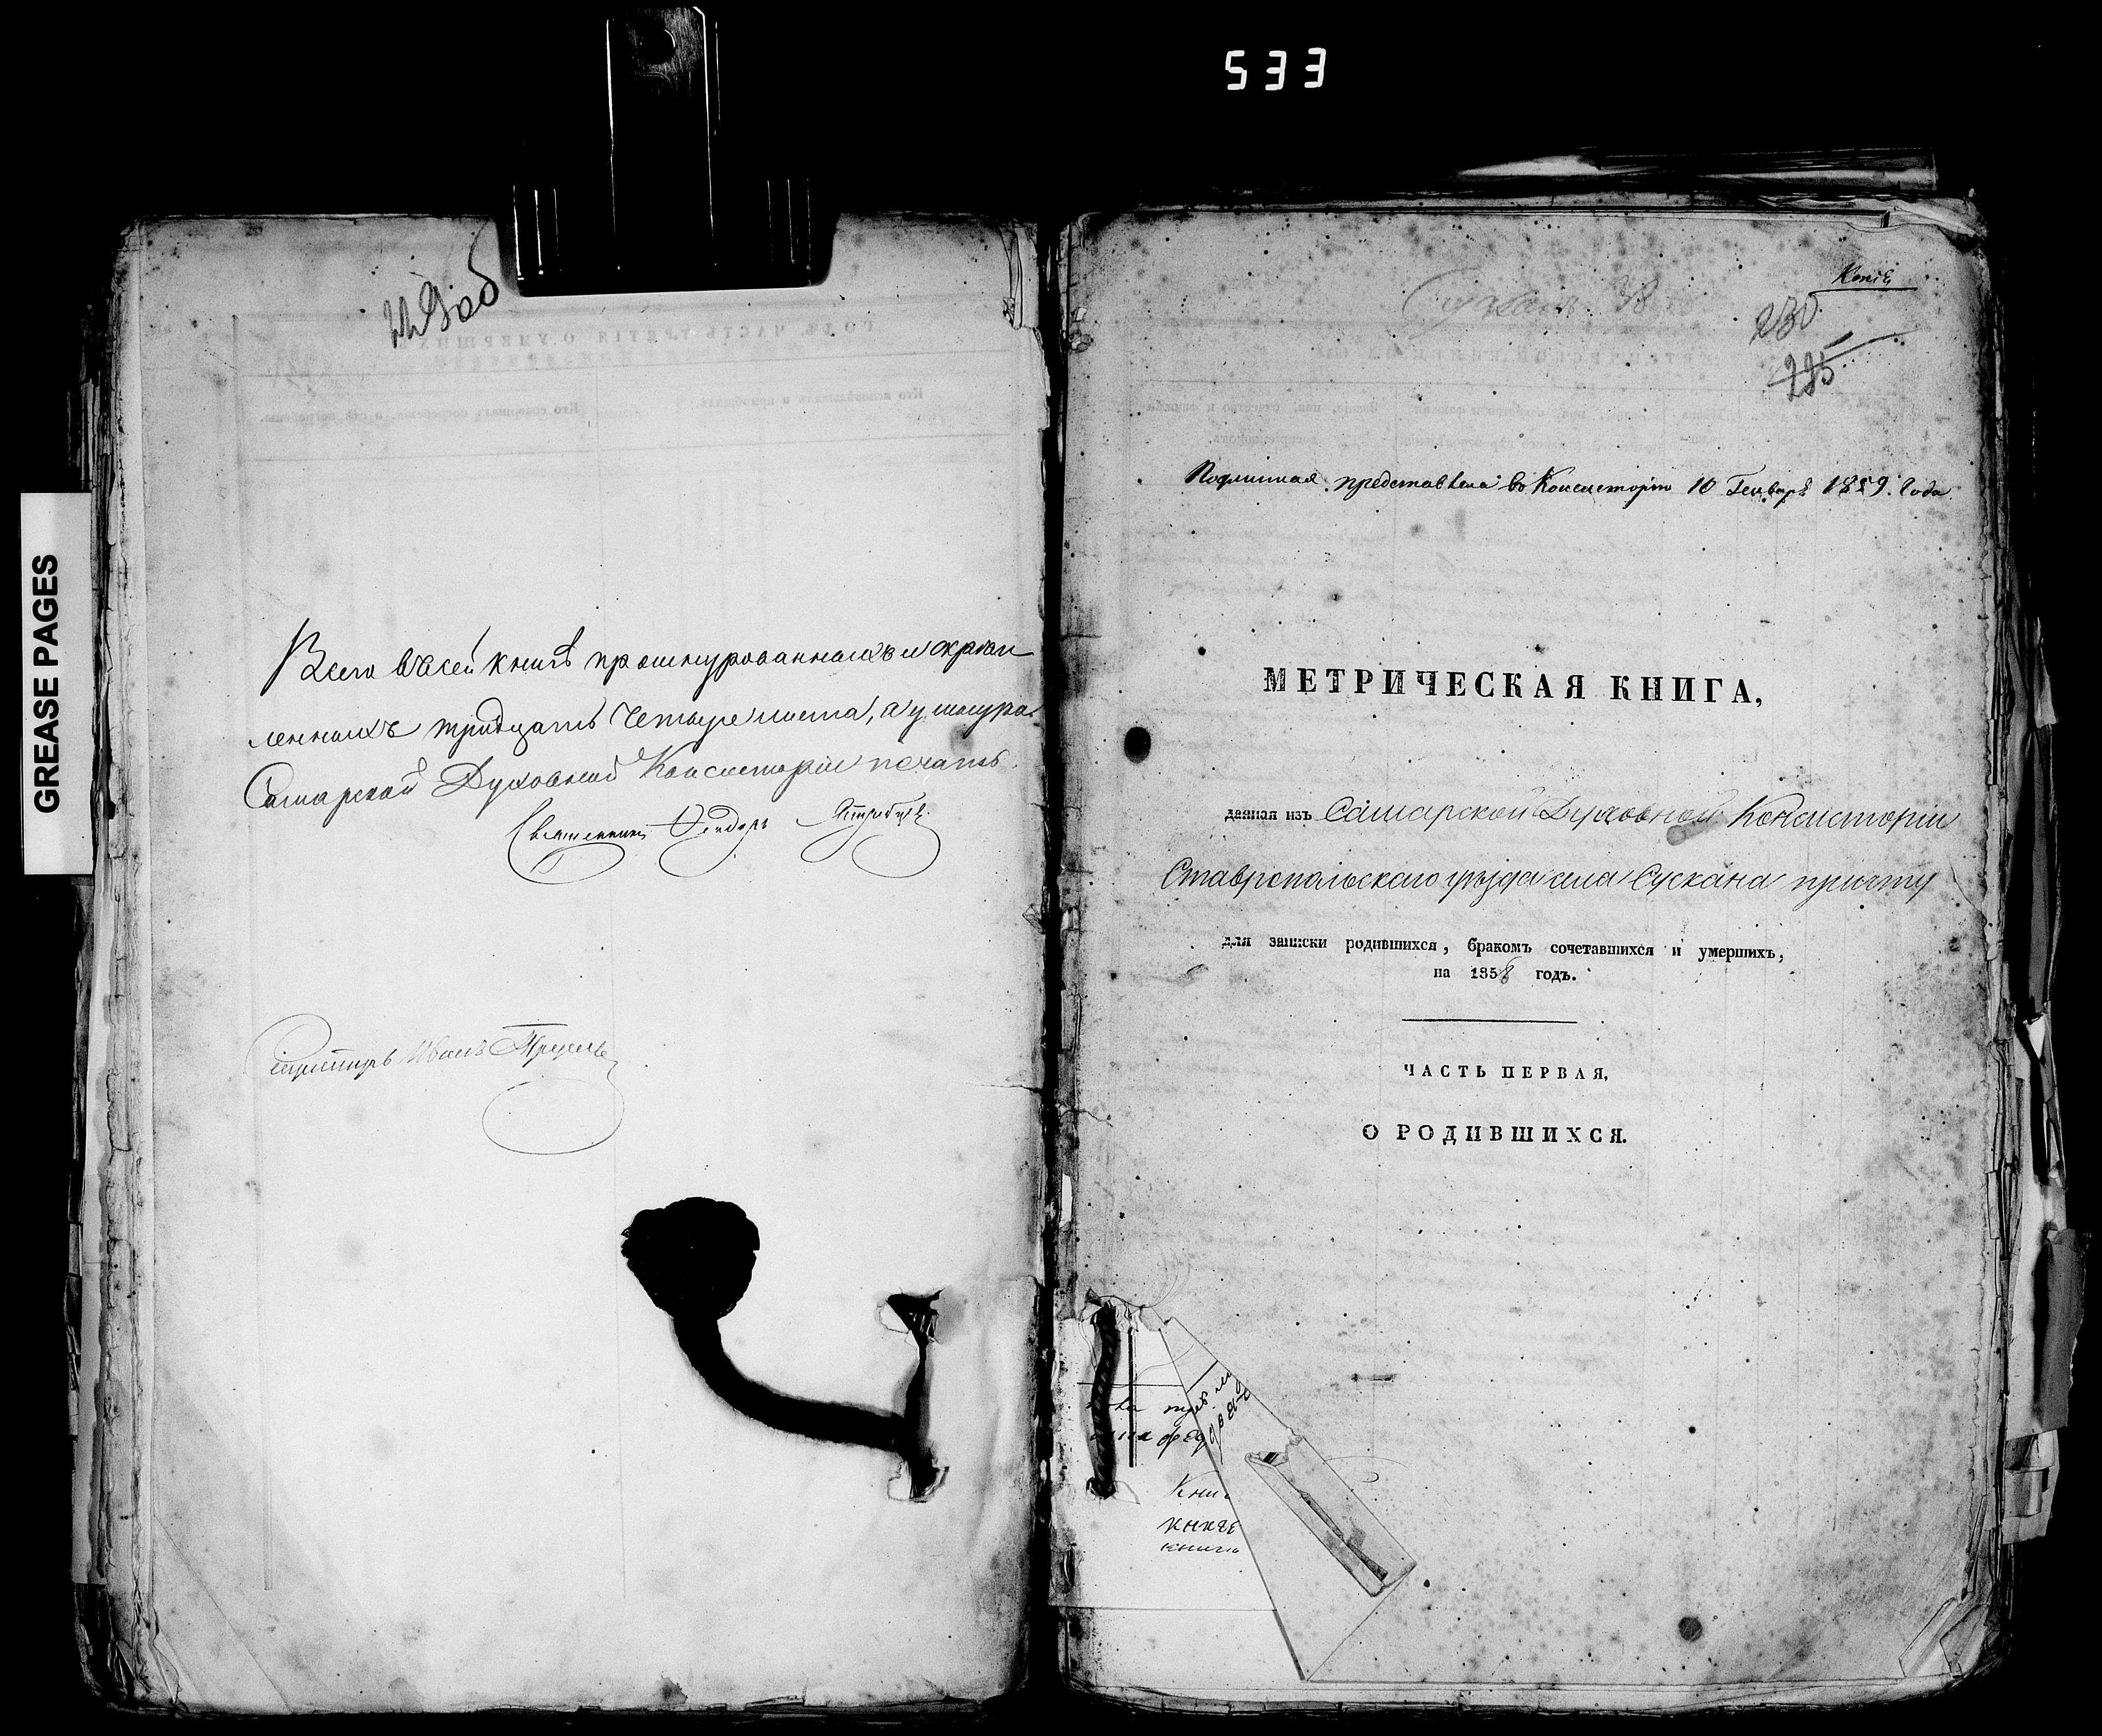 533
GREASE PAGES
Всего въ сей книгѣ прошнурованныхъ и скрѣп
ленныхъ тридцать четыре листа, а у шнура
Самарской Духовной Консисторіи печать.
Священникъ Ѳеодоръ
Иванъ
Копія
230
225
Подлинная представлена въ Консисторію 10 Генваря 1859. Года
МЕТРИЧЕСКАЯ КНИГА,
данная изъ Самарской Духовной Консисторіи
Ставропольскаго уѣзда села Сускана причту
для записки родившихся, бракомъ сочетавшихся и умершихъ,
на 1858 годъ.
ЧАСТЬ ПЕРВАЯ,
О РОДИВШИХСЯ.